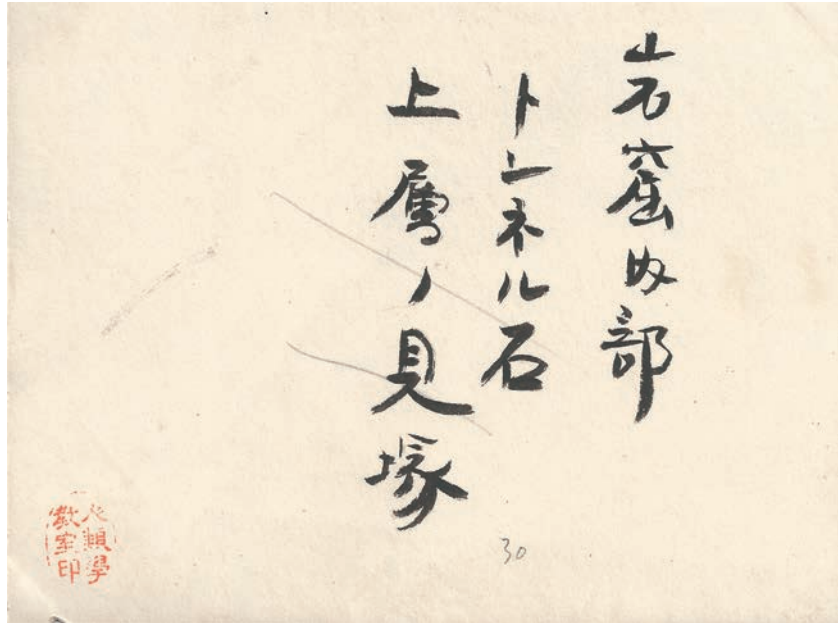 岩窟内部
トンネル石
上層ノ見塚
30
人類學
教室印